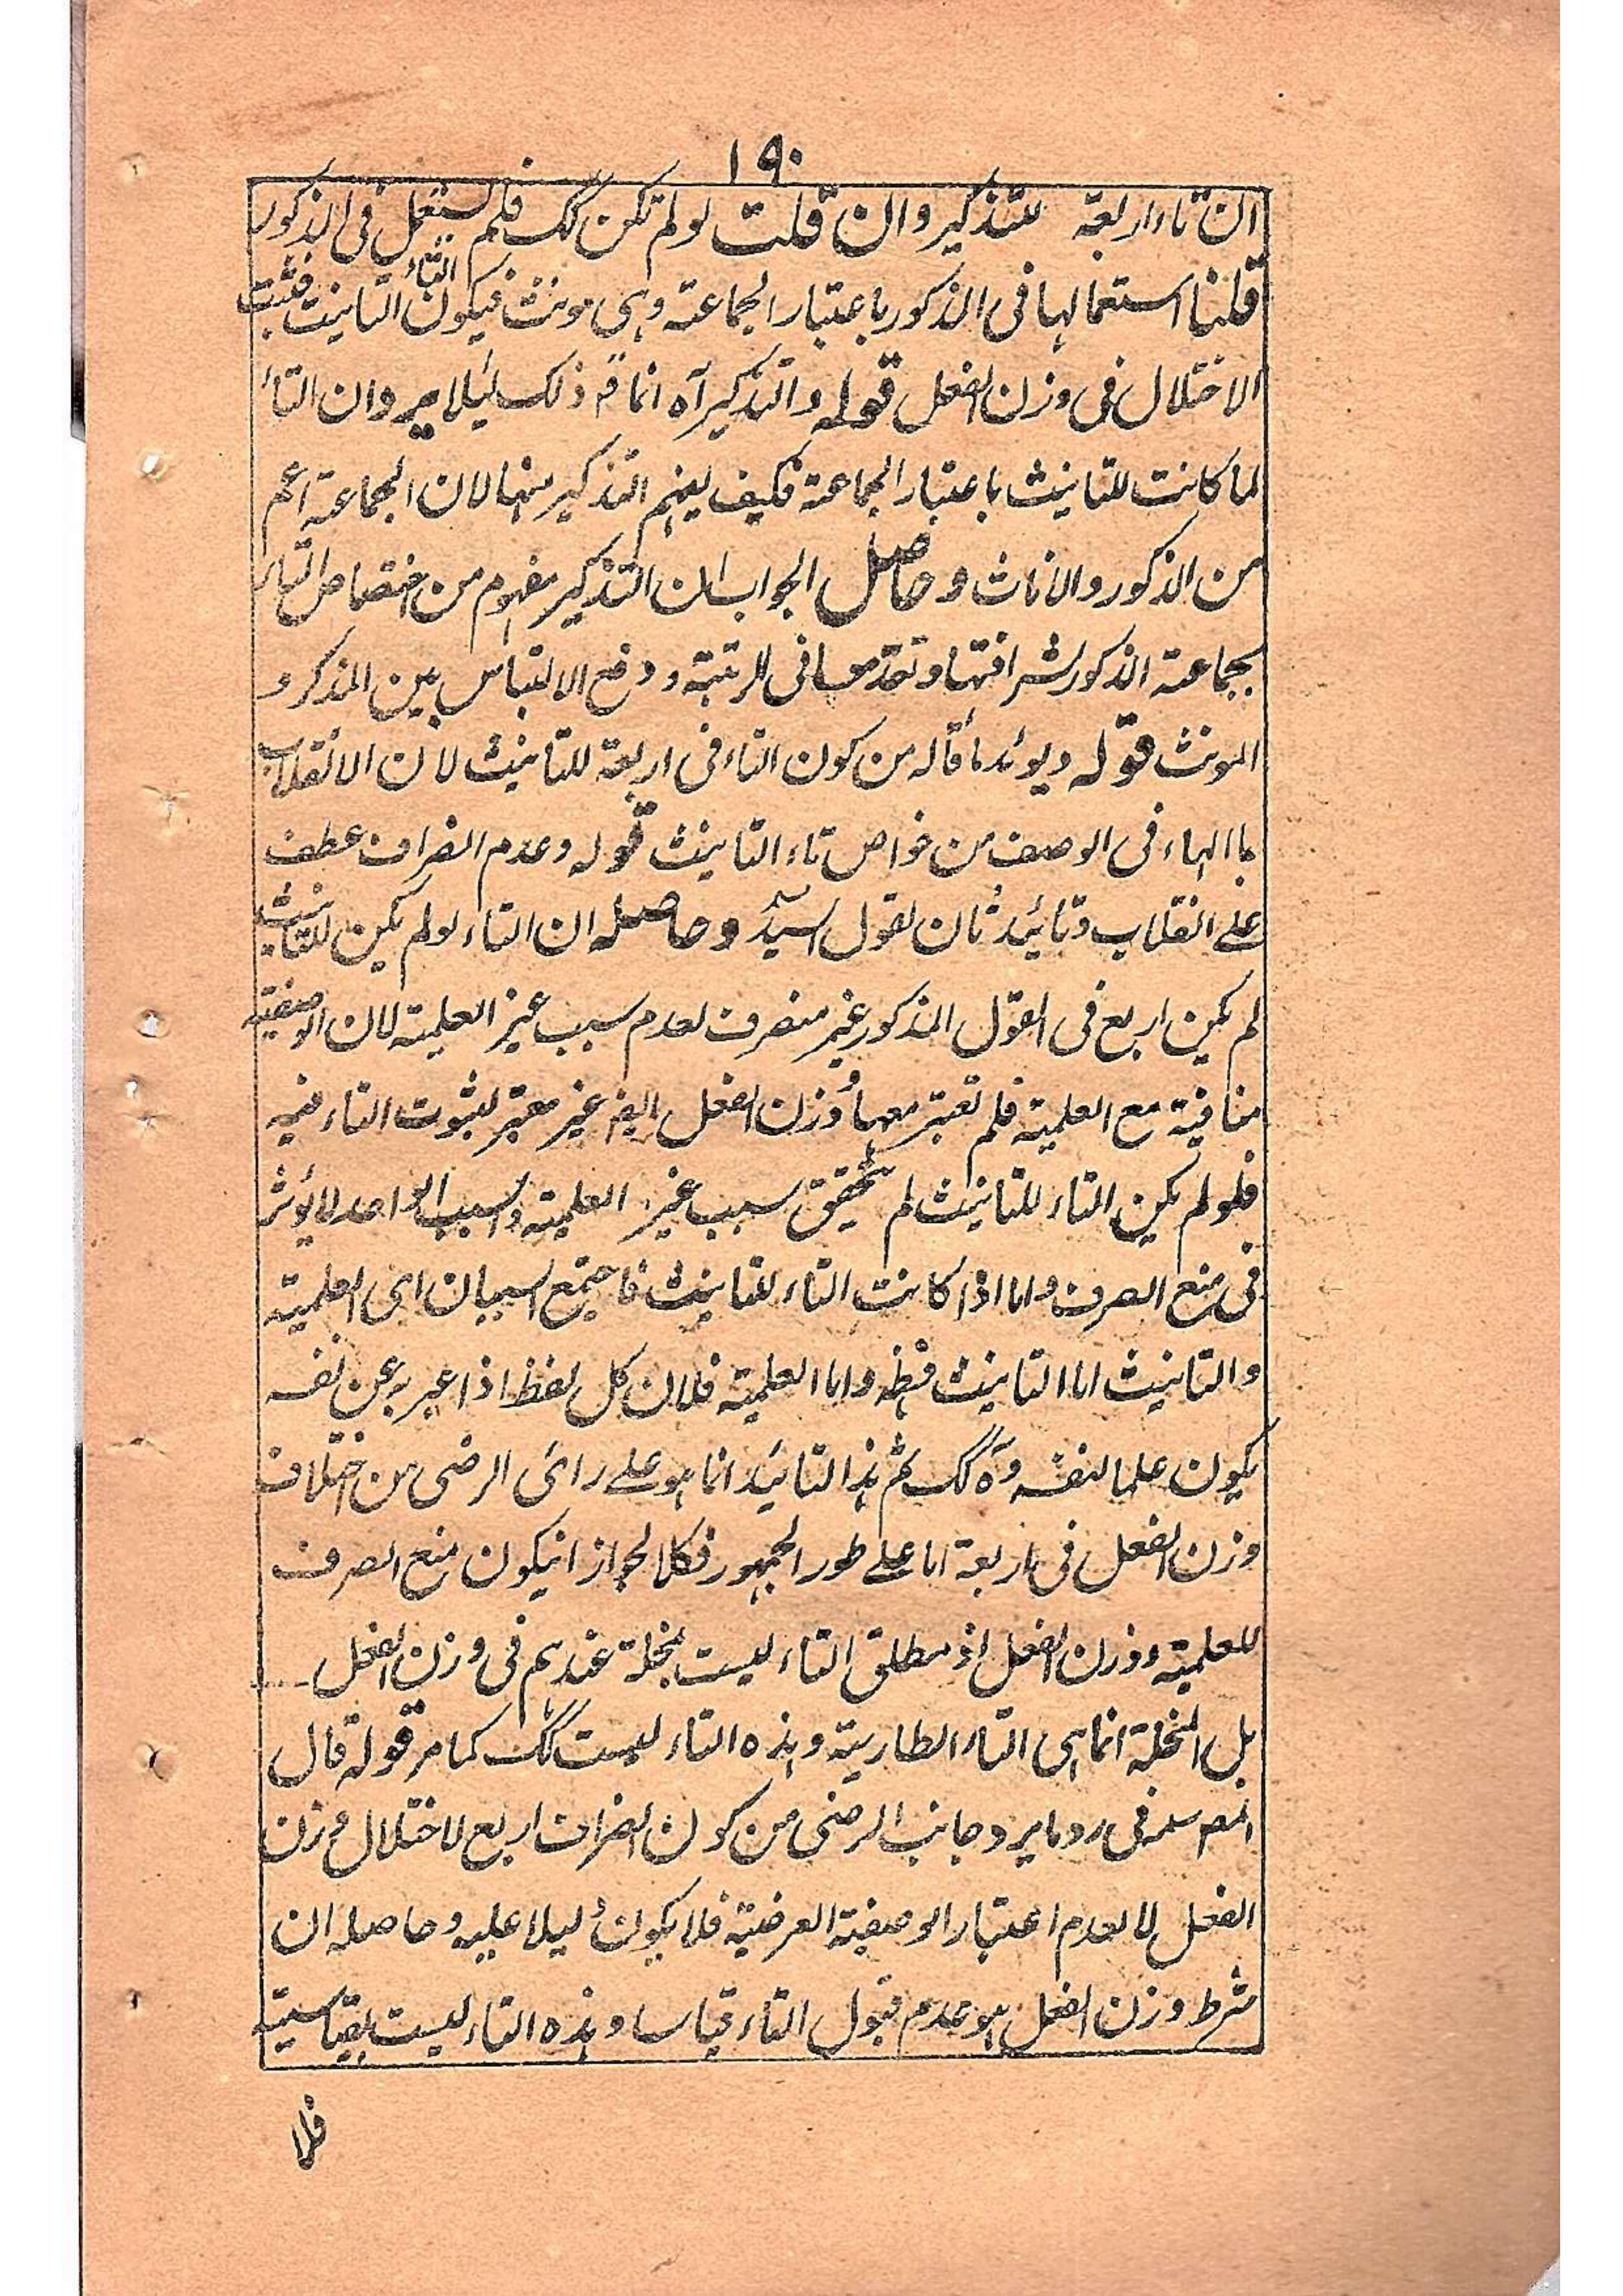 ١٩٠
ان تاء اربعة للتذكير وان قلت لو لم تكن كك فلم يستعمل فى الذكور
قلنا استعمالها فى الذكور باعتبار الجماعة وهى مونث فيكون التاء التانيث فثبت
الاختلال فى وزن الفعل قوله والتذكير آه انما قه ذلك ليلا يرد ان التاء
لما كانت للتانيث باعتبار الجماعة فكيف يفهم التذكير منها لان الجماعة اعم
من الذكور والاناث وحاصل الجواب ان التذكير مفهوم من اختصاص التاء
بجماعة الذكور لشرافتها وتقدمها فى الرتبة ودفع الالتباس بين المذكر و
المونث قوله ويوئد ما قاله من كون التاء فى اربعة للتانيث لان الانقلاب
باالهاء فى الوصف من خواص تاء التانيث قوله وعدم انصراف عطف
على انقلاب وتائيد ثان لقول السيد وحاصله ان التاء لو لم يكن للتانيث
لم يكن اربع فى القول المذكور غير منصرف لعدم سبب غير العلمية لان الوصفية
منافية مع العلمية فلم تعتبر معها ووزن الفعل ايضا غير معتبر لثبوت التاء فيه
فلو لم يكن التاء للتانيث لم يتحقق سبب غير العلمية والسبب الواحد لا يوثر
فى منع الصرف واما اذا كانت التاء للتانيث فاجتمع السببان اى العلمية
والتانيث اما التانيث فظه واما العلمية فلان كل لفظ اذا عبر به عن نفسه
يكون علما لنفسه وه كك ثم هذا التائيد انما هو على رائ الرضى من اختلاف
وزن الفعل فى اربعة اما على طور الجمهور فكلا لجواز انيكون منع الصرف
للعلمية ووزن الفعل اذ مطلق التاء ليست بمخلة عندهم فى وزن الفعل
بل المخلة انما هى التاء الطارية وهذه التاء ليست كك كما مر قوله قال
المصر سلمه فى رد ما يرد جانب الرضى من كون انصراف اربع لاختلال وزن
الفعل لا لعدم اعتبار الوصفية العرضية فلا يكون دليلا عليه وحاصله ان
شرط وزن الفعل هو عدم قبول التاء قياسا وهذه التاء ليست بقياسية
فلا